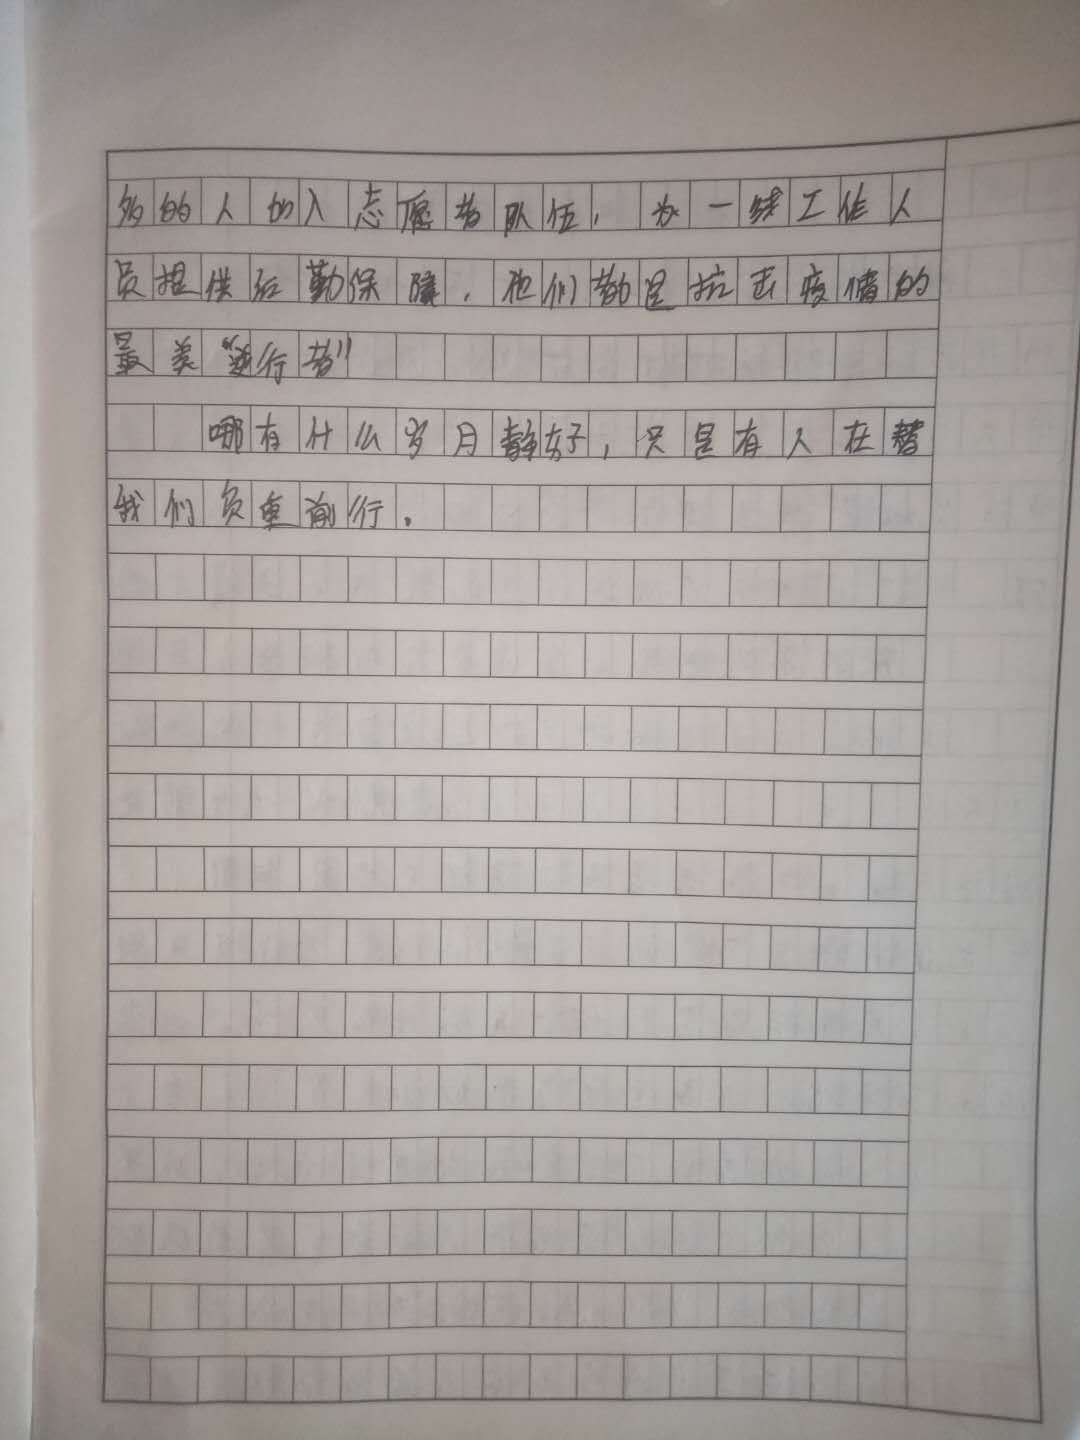 多的人加入志愿者队伍，为一线工作人
员提供后勤保障，他们都是抗击疫情的
最美“逆行者”
哪有什么岁月静好，只是有人在替
我们负重前行。